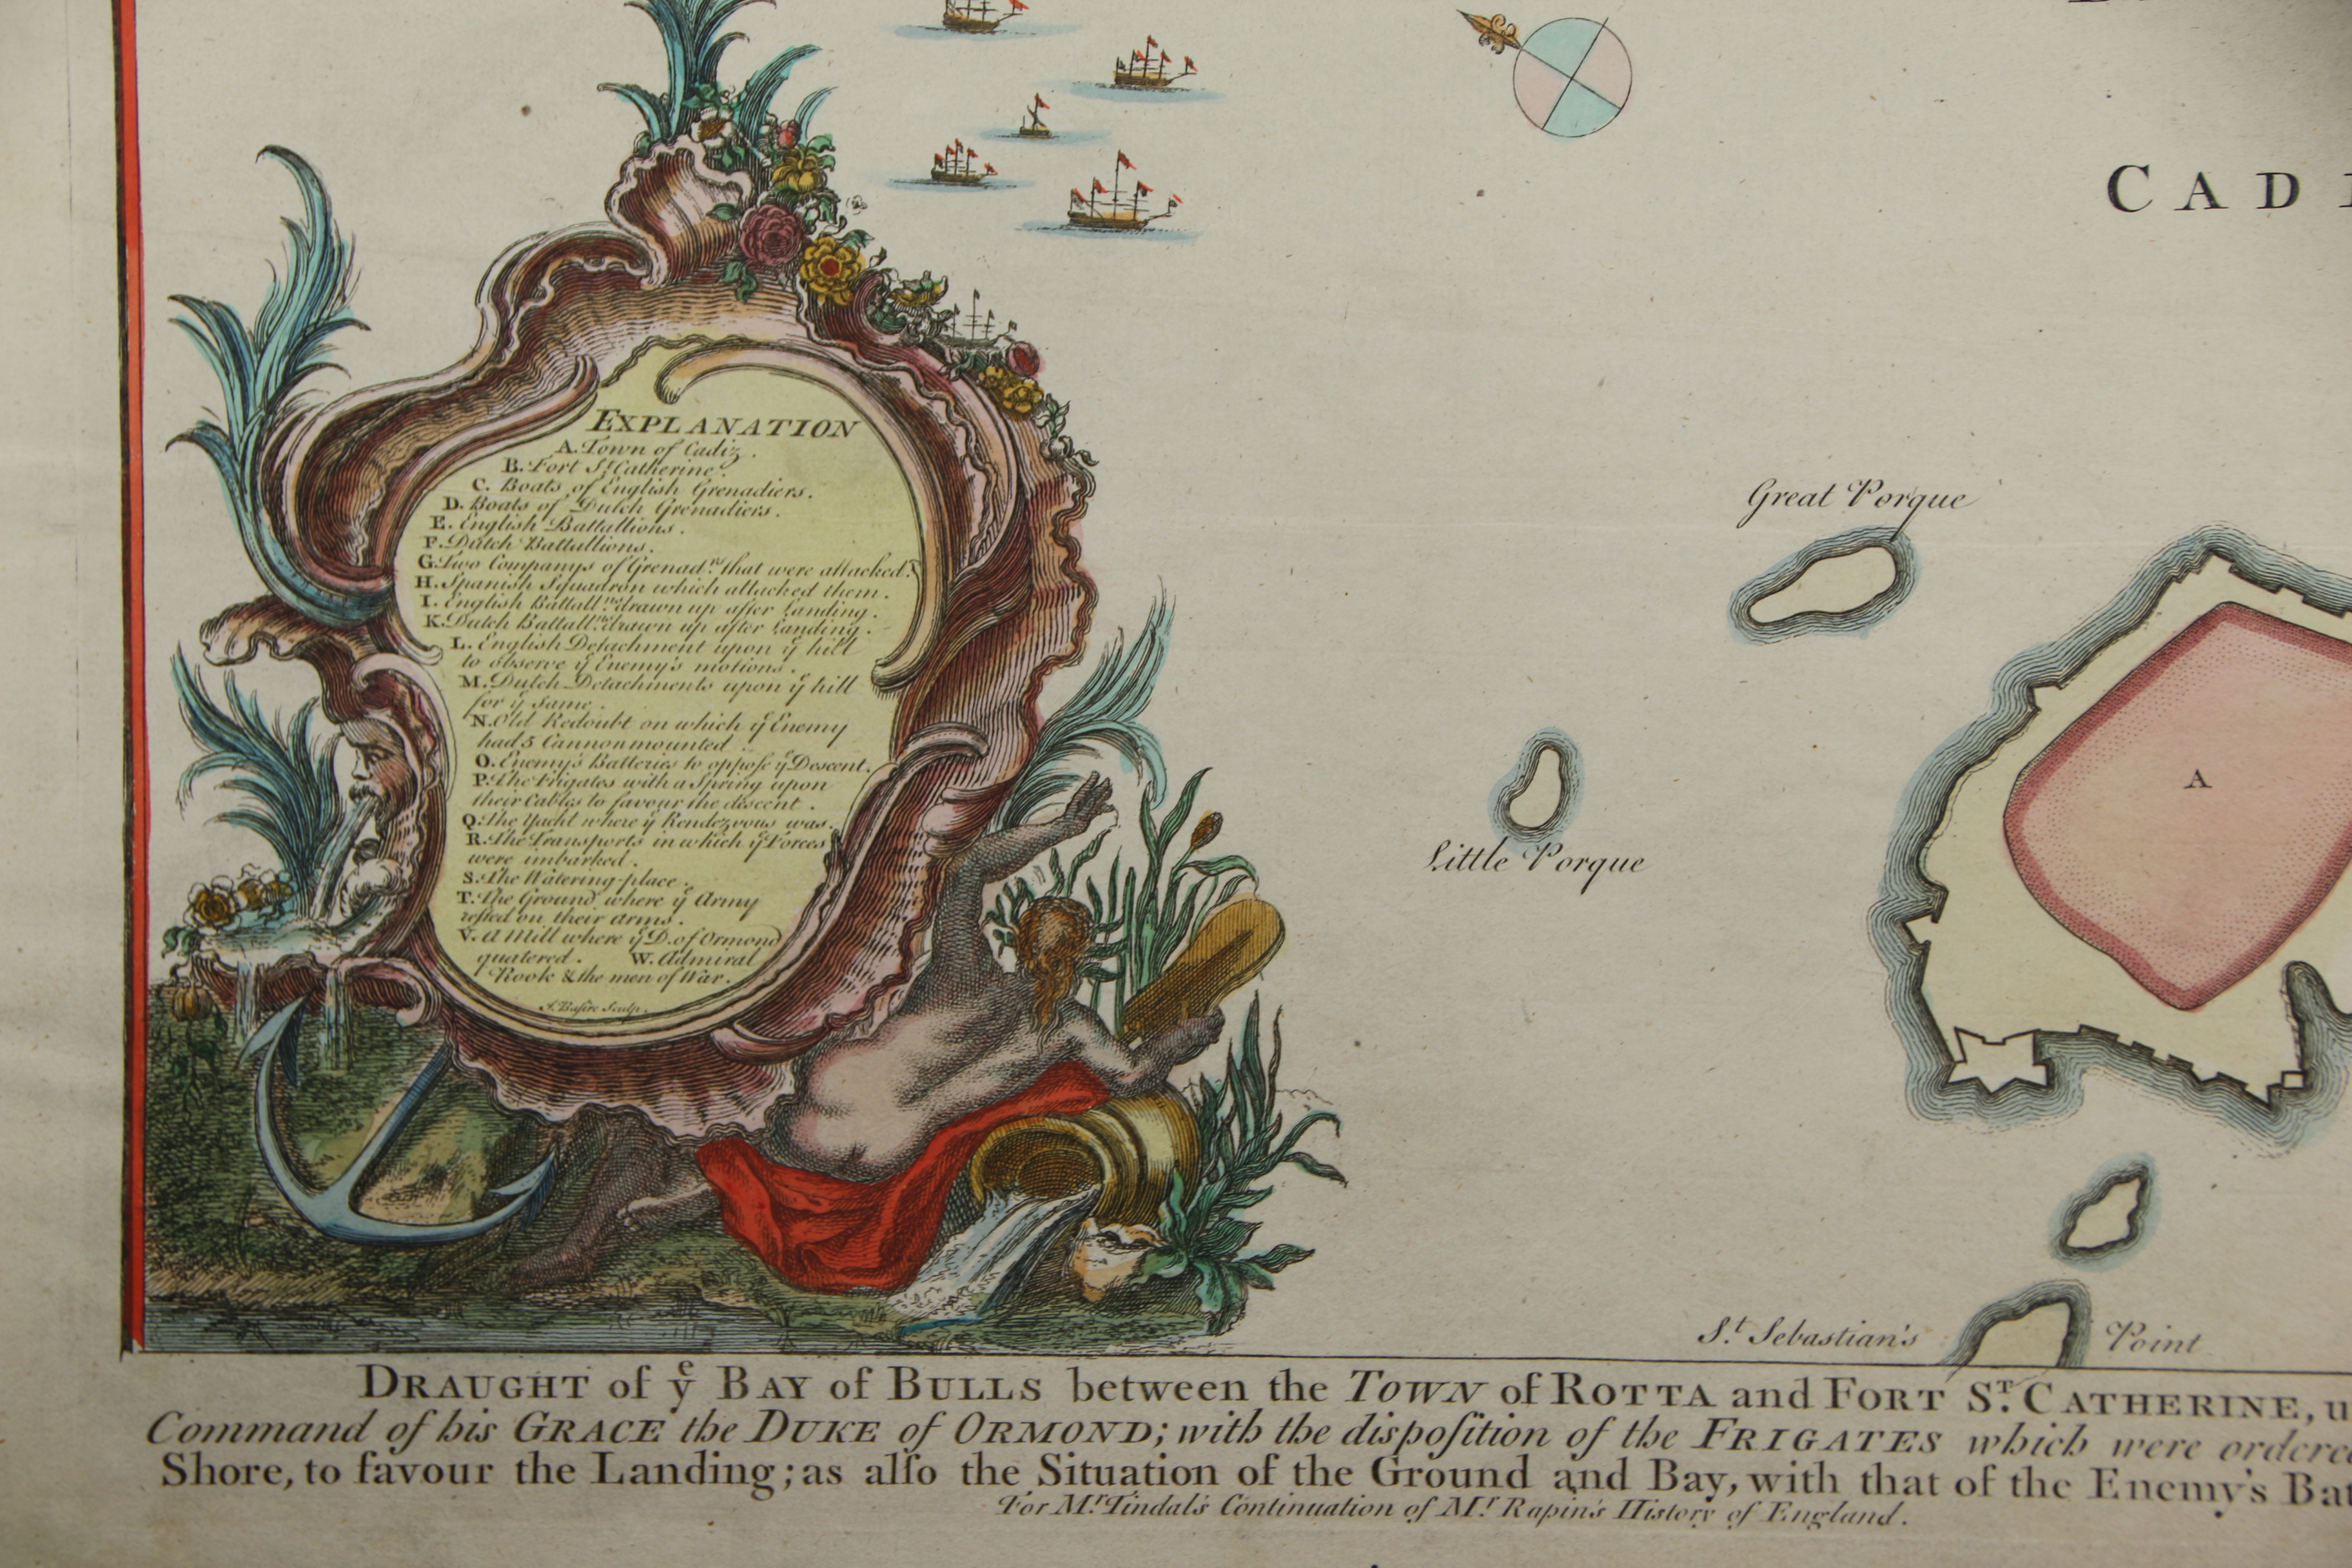 CAD
EXPLANATION
A. Town of Cadiz.
B. Fort St Catherine.
C. Boats of English Grenadiers.
D. Boats of Dutch Grenadiers.
E. English Battallions.
F. Dutch Battallions.
G. Two Companys of Grenad.rs that were attacked.
H. Spanish Squadron which attacked them.
I. English Battall.ns drawn up after Landing.
K. Dutch Battall.ns drawn up after Landing.
L. English Detachment upon ye hill
to observe ye Enemy's motions.
M. Dutch Detachments upon ye hill
for ye same.
N. Old Redoubt on which ye Enemy
had 5 Cannon mounted
O. Enemy's Batteries to oppose ye Descent.
P. The Frigates with a Spring upon
their Cables to favour the descent.
Q. The Yacht where ye Rendezvous was.
R. The Transports in which ye Forces
were imbarked.
S. The Watering-place.
T. The Ground where ye Army
rested on their arms.
V. A Mill where ye D. of Ormond
quatered. W. Admiral
Rook & the men of War.
J. Basire Sculp.
Great Porque
Little Porque
A
St. Sebastian's Point
DRAUGHT of ye BAY of BULLS between the TOWN of ROTTA and FORT ST. CATHERINE, u
Command of his GRACE the DUKE of ORMOND; with the dispoſition of the FRIGATES which were ordere
Shore, to favour the Landing; as alſo the Situation of the Ground and Bay, with that of the Enemy's Bat
For Mr. Tindal's Continuation of Mr. Rapin's History of England.